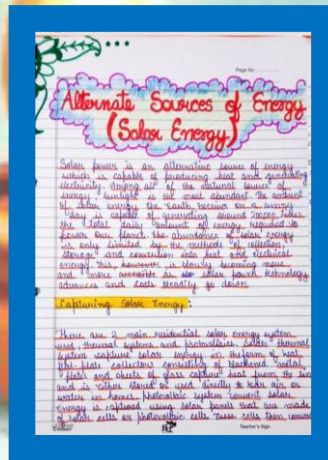 Page No.
Alternate Sources of Energy
(Solar Energy)
Solar power is an alternative source of energy
which is capable of producing heat and generating
electricity. Among all of the natural source of
energy sunlight is the most abundant the amount
of solar energy the Earth receives on a sunny
day is capable of generating around times
the total daily amount of energy required to
power our planet the abundance of solar energy
is only limited by the methods of collection
storage and conversion into heat and electrical
energy. This however is slowly becoming more
and more accessible as solar power technology
advances and costs steadily go down.
Capturing Solar Energy:
There are 2 main residential solar energy system
used, thermal systems and photovoltaics. Solar thermal
system capture solar energy in the form of heat
plate collectors consisting of blackened metal
plates and sheets of glass capture heat from the sun
and is either stored or used directly to heat air or
water in homes. photovoltaic system convert solar
energy is captured using solar panels that are made
of solar cells or photovoltaic cells these cells then convert
Teacher's Sign.